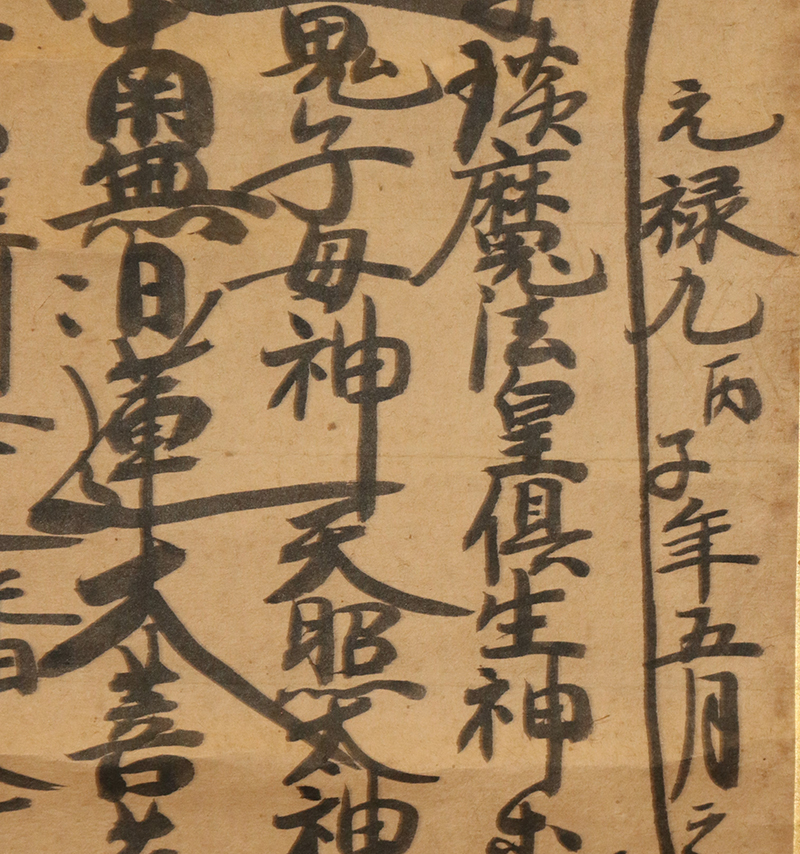 元禄九丙子年五月
琰魔法皇俱生神
鬼子母神 天照太神
南無日蓮大善